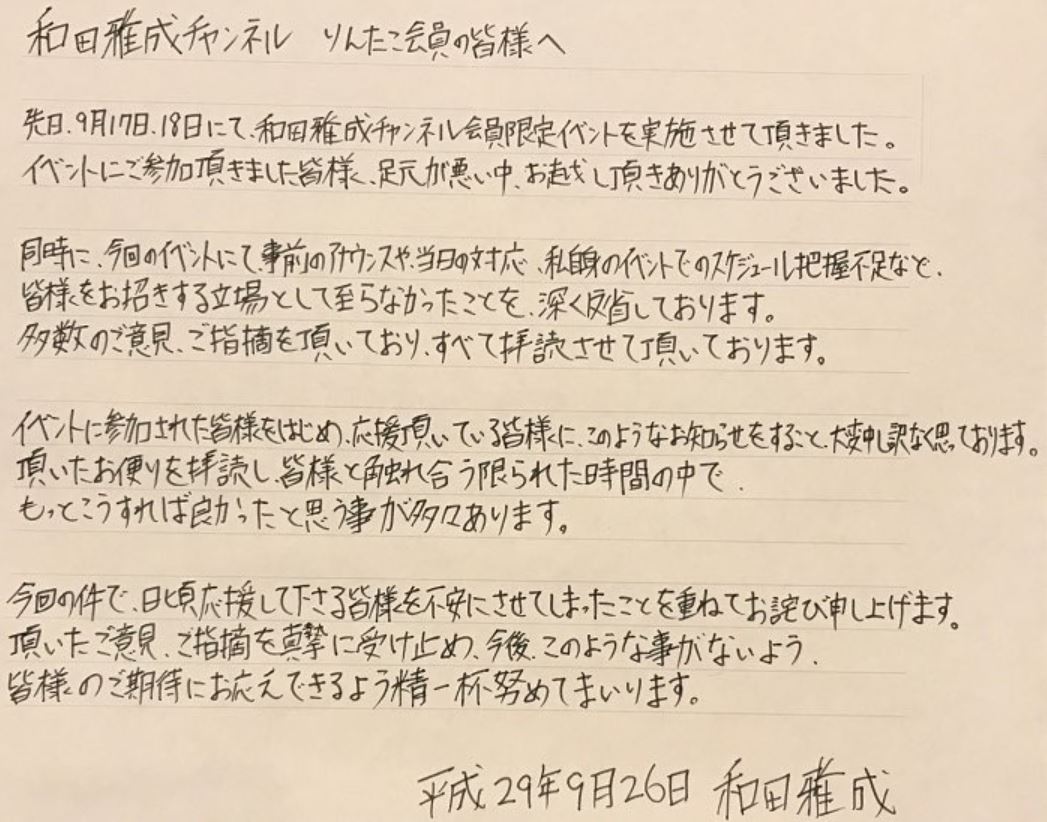 和田雅成チャンネル りんたこ会員の皆様へ
先日、9月17日、18日にて、和田雅成チャンネル会員限定イベントを実施させて頂きました。
イベントにご参加頂きました皆様、足元が悪い中、お越し頂きありがとうございました。
同時に、今回のイベントにて、事前のアナウンスや、当日の対応、私自身のイベントでのスケジュール把握不足など、
皆様をお招きする立場として至らなかったことを、深く反省しております。
多数のご意見、ご指摘を頂いており、すべて拝読させて頂いております。
イベントに参加された皆様をはじめ、応援頂いている皆様に、このようなお知らせをすること、大変申し訳なく思っております。
頂いたお便りを拝読し、皆様と触れ合う限られた時間の中で、
もっとこうすれば良かったと思う事が多々あります。
今回の件で、日頃応援して下さる皆様を不安にさせてしまったことを重ねてお詫び申し上げます。
頂いたご意見、ご指摘を真摯に受け止め、今後、このような事がないよう、
皆様のご期待にお応えできるよう精一杯努めてまいります。
平成29年9月26日 和田雅成